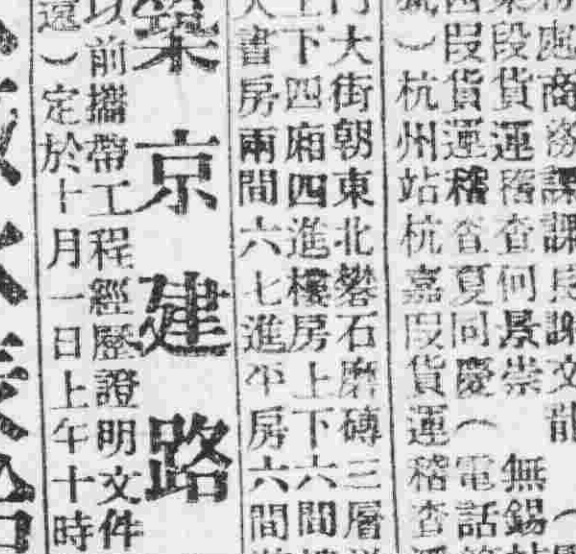 商務課課長謝文龍
段貨運稽查何景崇　無錫
段貨運稽查夏同慶（電話
）杭州站杭嘉段貨運稽查
大街朝東北礬石磨磚三層
下四廂四進樓房上下六間
書房兩間六七進平房六間
築京建路
以前攜帶工程經歷證明文件
遠）定於十月一日上午十時